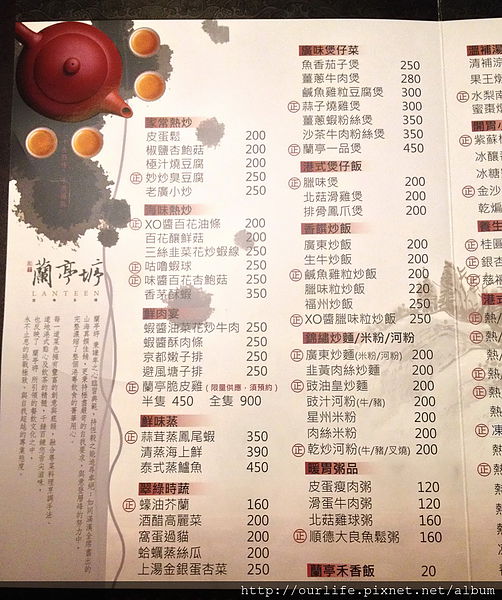 蘭亭坊
LANTEEN
家常熱炒
皮蛋鬆 200
椒鹽杏鮑菇 200
極汁燒豆腐 200
正 妙妙臭豆腐 250
老廣小炒 250
海味熱炒
正 XO醬百花油條 200
百花釀鮮菇 200
三絲韭菜花炒蝦線 250
正 咕嚕蝦球 250
正 味醬百花杏鮑菇 250
香芒酥蝦 350
鮮肉宴
蝦醬油菜花炒牛肉 250
蝦醬酥肉條 250
京都嫩子排 250
避風塘子排 250
正 蘭亭脆皮雞 (限量供應，須預約)
半隻 450 全隻 900
鮮味蒸
正 蒜茸蒸鳳尾蝦 350
清蒸海上鮮 390
泰式蒸鱸魚 450
翠綠時蔬
正 蠔油芥蘭 160
酒醋高麗菜 200
窩蛋過貓 200
蛤蠣蒸絲瓜 200
上湯金銀蛋杏菜 250
廣味煲仔菜
魚香茄子煲 250
薑蔥牛肉煲 280
鹹魚雞粒豆腐煲 300
正 蒜子燒雞煲 300
薑蔥蝦粉絲煲 350
沙茶牛肉粉絲煲 350
正 蘭亭一品煲 450
港式煲仔飯
正 臘味煲 200
北菇滑雞煲 200
排骨鳳爪煲 200
香饌炒飯
廣東炒飯 200
生牛炒飯 200
正 鹹魚雞粒炒飯 200
臘味粒炒飯 220
福州炒飯 250
正 XO醬臘味粒炒飯 250
錦繡炒麵/米粉/河粉
正 廣東炒麵(米粉/河粉) 200
韭黃肉絲炒麵 200
正 豉油皇炒麵 200
豉汁河粉(牛/豬) 200
星州米粉 200
肉絲米粉 200
正 乾炒河粉(牛/豬/叉燒) 200
暖胃粥品
皮蛋瘦肉粥 120
滑蛋牛肉粥 120
北菇雞球粥 160
正 順德大良魚鬆粥 160
蘭亭禾香飯 20
溫補湯
清補涼
果王燉
正 水梨南
蜜棗
開胃小
正 紫蘇梅
冰釀
冰糖
正 金沙
乾煸
養生
正 桂圓
正 銀杏
正 慈禧
港式
正 熱/
正 熱/
熱/
正 熱/
正 熱/
正 凍
熱
正 熱
http://ourlife.pixnet.net/album